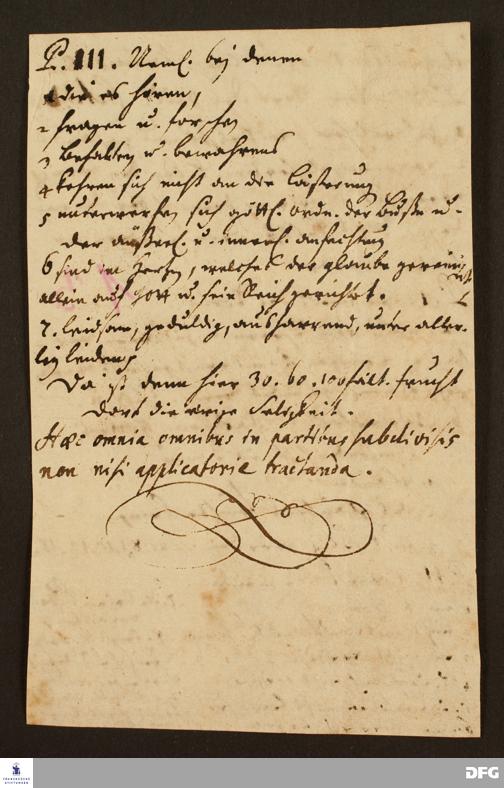 P. III. Neml. bej denen
1 die es hören,
2 fragen u. forschen
3 Behalten u. bewahrens
4 kehren sich nicht an die Lästerung
5 unterwerfen sich göttl. ordn. der Buße u.
der äußerl. u. innerl. anfechtung
6 sind im Herzen, welches der glaube gereinigt
allein auf Gott u. sein Reich gerichtet.
7. leidsam, geduldig, ausharrend, unter aller-
ley leiden
Da ist denn hier 30. 60. 100 fält. frucht
dort die ewige Seligkeit.
Haec omnia omnibus in partibus subdivisis
non nisi applicatorie tractanda.
FRANCKESCHE STIFTUNGEN
DFG